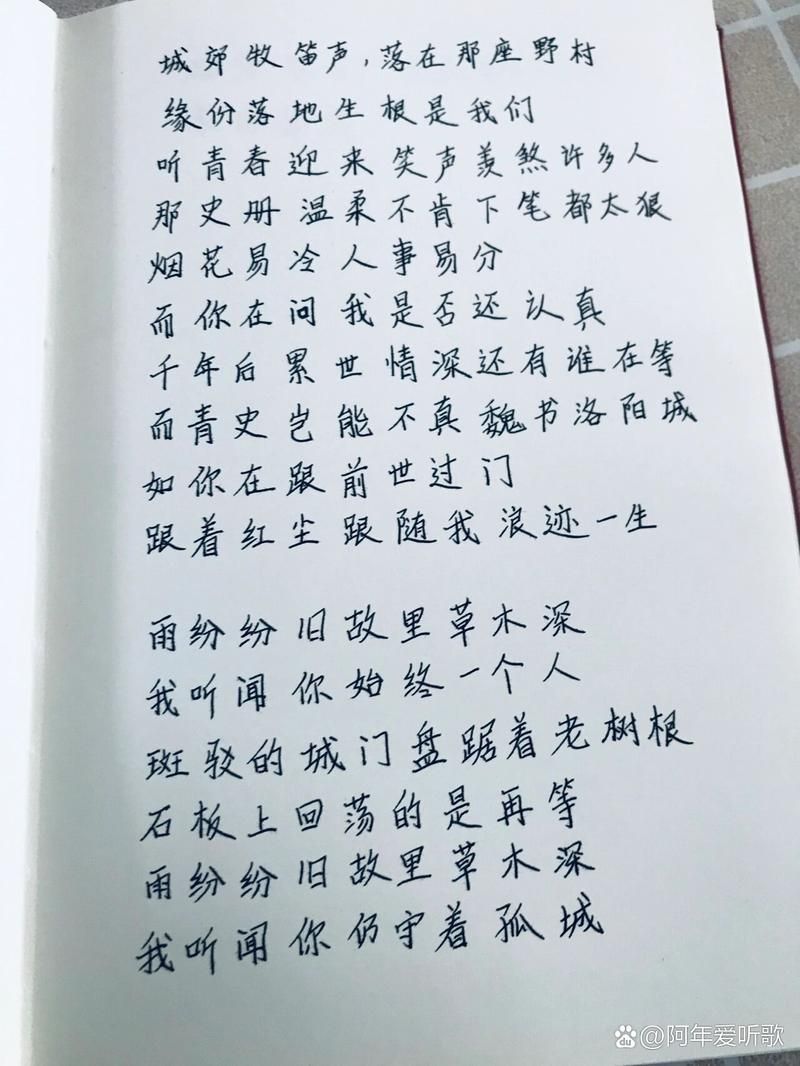 城郊牧笛声,落在那座野村
缘份落地生根是我们
听青春迎来笑声羡煞许多人
那史册温柔不肯下笔都太狠
烟花易冷人事易分
而你在问我是否还认真
千年后累世情深还有谁在等
而青史岂能不真魏书洛阳城
如你在跟前世过门
跟着红尘跟随我浪迹一生
雨纷纷旧故里草木深
我听闻你始终一个人
斑驳的城门盘踞着老树根
石板上回荡的是再等
雨纷纷旧故里草木深
我听闻你仍守着孤城
Bai du @阿年爱听歌